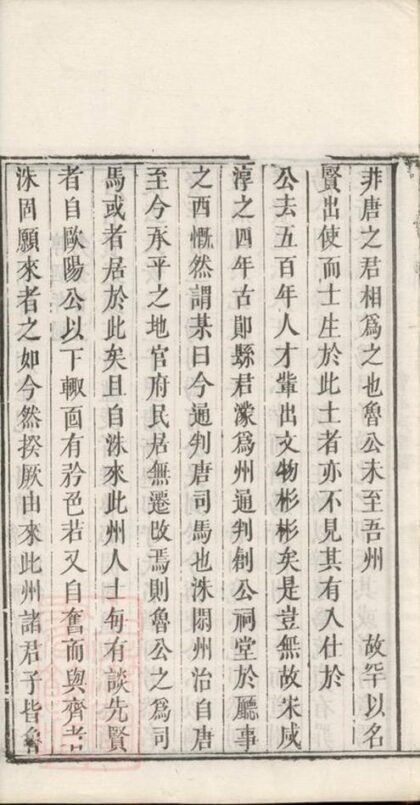 非唐之君相爲之也魯公未至吾州 故罕以名
賢出使而士生於此土者亦不見其有入仕於
公去五百年人才輩出文物彬彬矣是豈無故宋咸
淳之四年古郧縣君濛爲州通判創公祠堂於廳事
之西慨然謂某曰今通判唐司馬也洙閱州治自唐
至今承平之地官府民居無遷改焉則魯公之爲司
馬或者居於此矣且自洙來此州人士每有談先賢
者自歐陽公以下輙面有矜色若又自奮而與齊者
洙固願來者之如今然揆厥由來此州諸君子皆魯